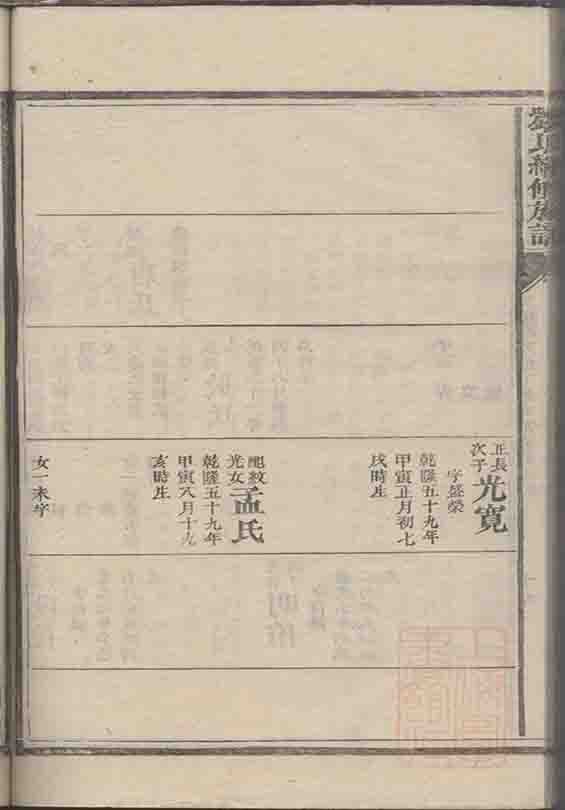 續修族譜
正長
次子
光寬
字盛榮
乾隆五十九年
甲寅正月初七
戌時生
配紋
光女
孟氏
乾隆五十九年
甲寅八月十九
亥時生
女一未字